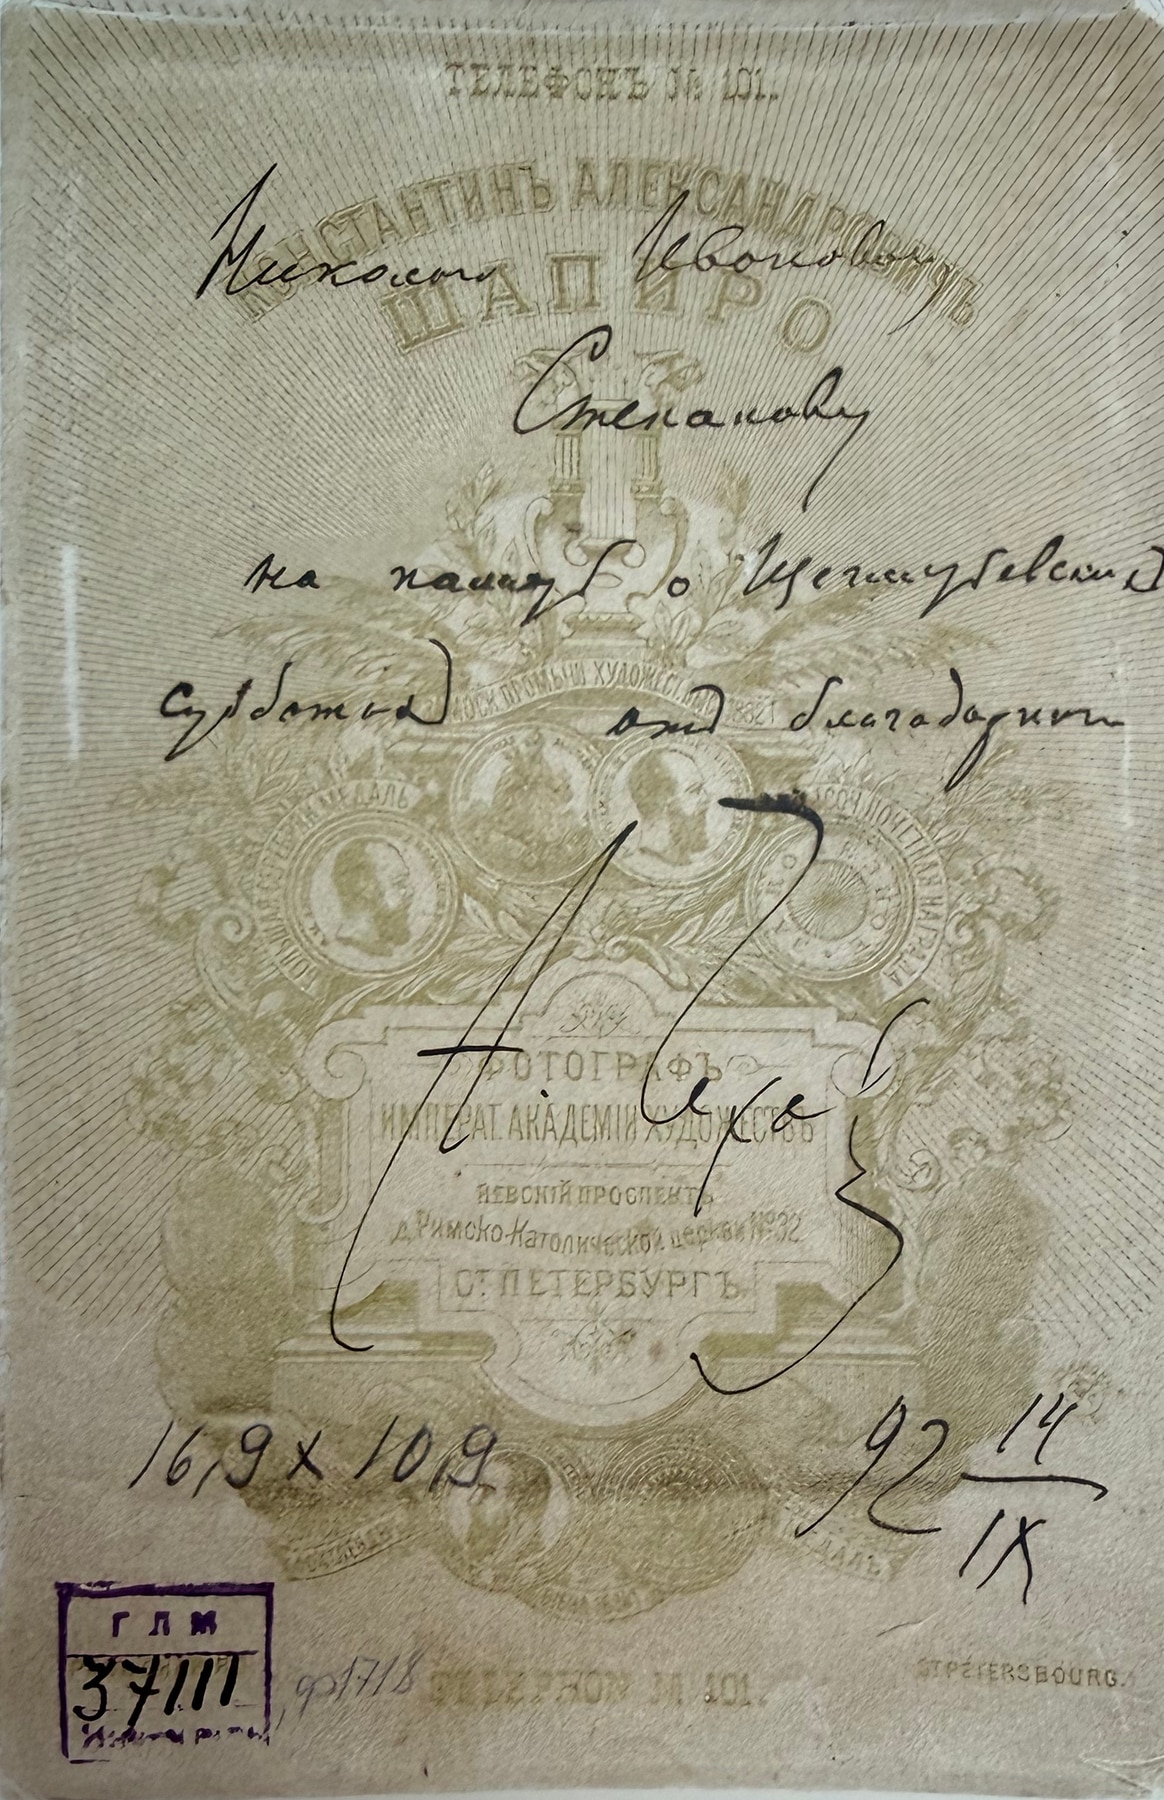 ТЕЛЕФОНЪ № 101.
КОНСТАНТИНЪ АЛЕКСАНДРОВИЧЪ
ШАПИРО
Николаю Ивановичу
Степанову
на память о
субботѣ отъ благодарнаго
ВСЕРОСС. ПРОМЫШ. ХУДОЖЕСТ. 1882 Г.
МЕДАЛЬ
НАГРАДА
А. Чехов
ФОТОГРАФЪ
ИМПЕРАТ. АКАДЕМІИ ХУДОЖЕСТВЪ
НЕВСКІЙ ПРОСПЕКТЪ
д. Римско-Католической церкви №32
Ст. ПЕТЕРБУРГЪ.
16,9 x 10,9
92 14
IX
ГЛМ
37111
ф1718
№ 101.
ST PETERSBOURG.